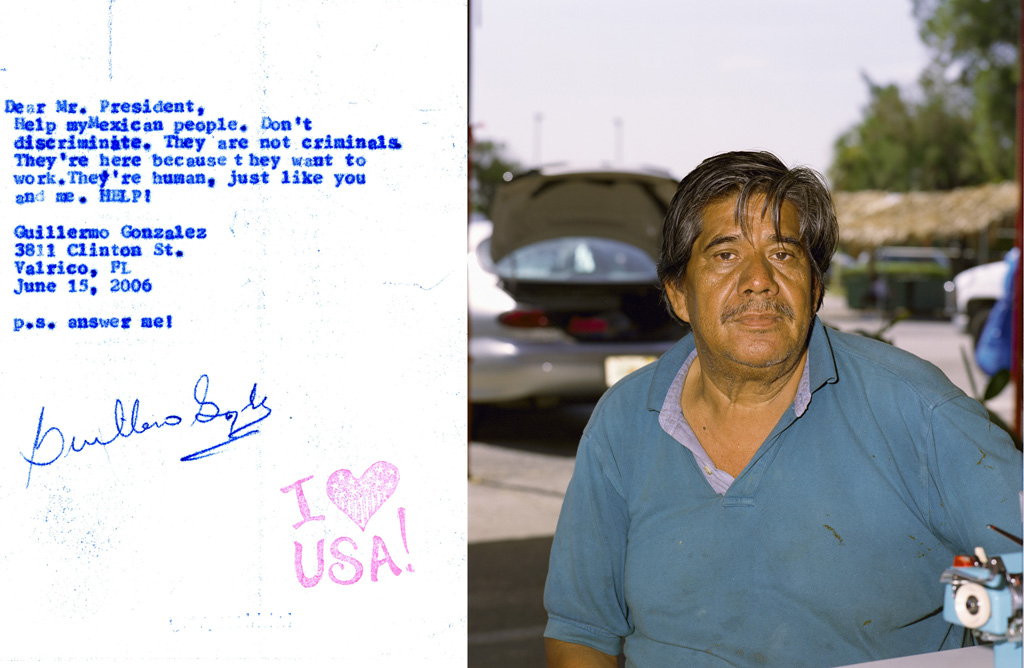 Dear Mr. President,
Help myMexican people. Don't
discriminate. They are not criminals.
They're here because they want to
work.They're human, just like you
and me. HELP!
Guillermo Gonzalez
3811 Clinton St.
Valrico, FL
June 15, 2006
p.s. answer me!
I
USA!